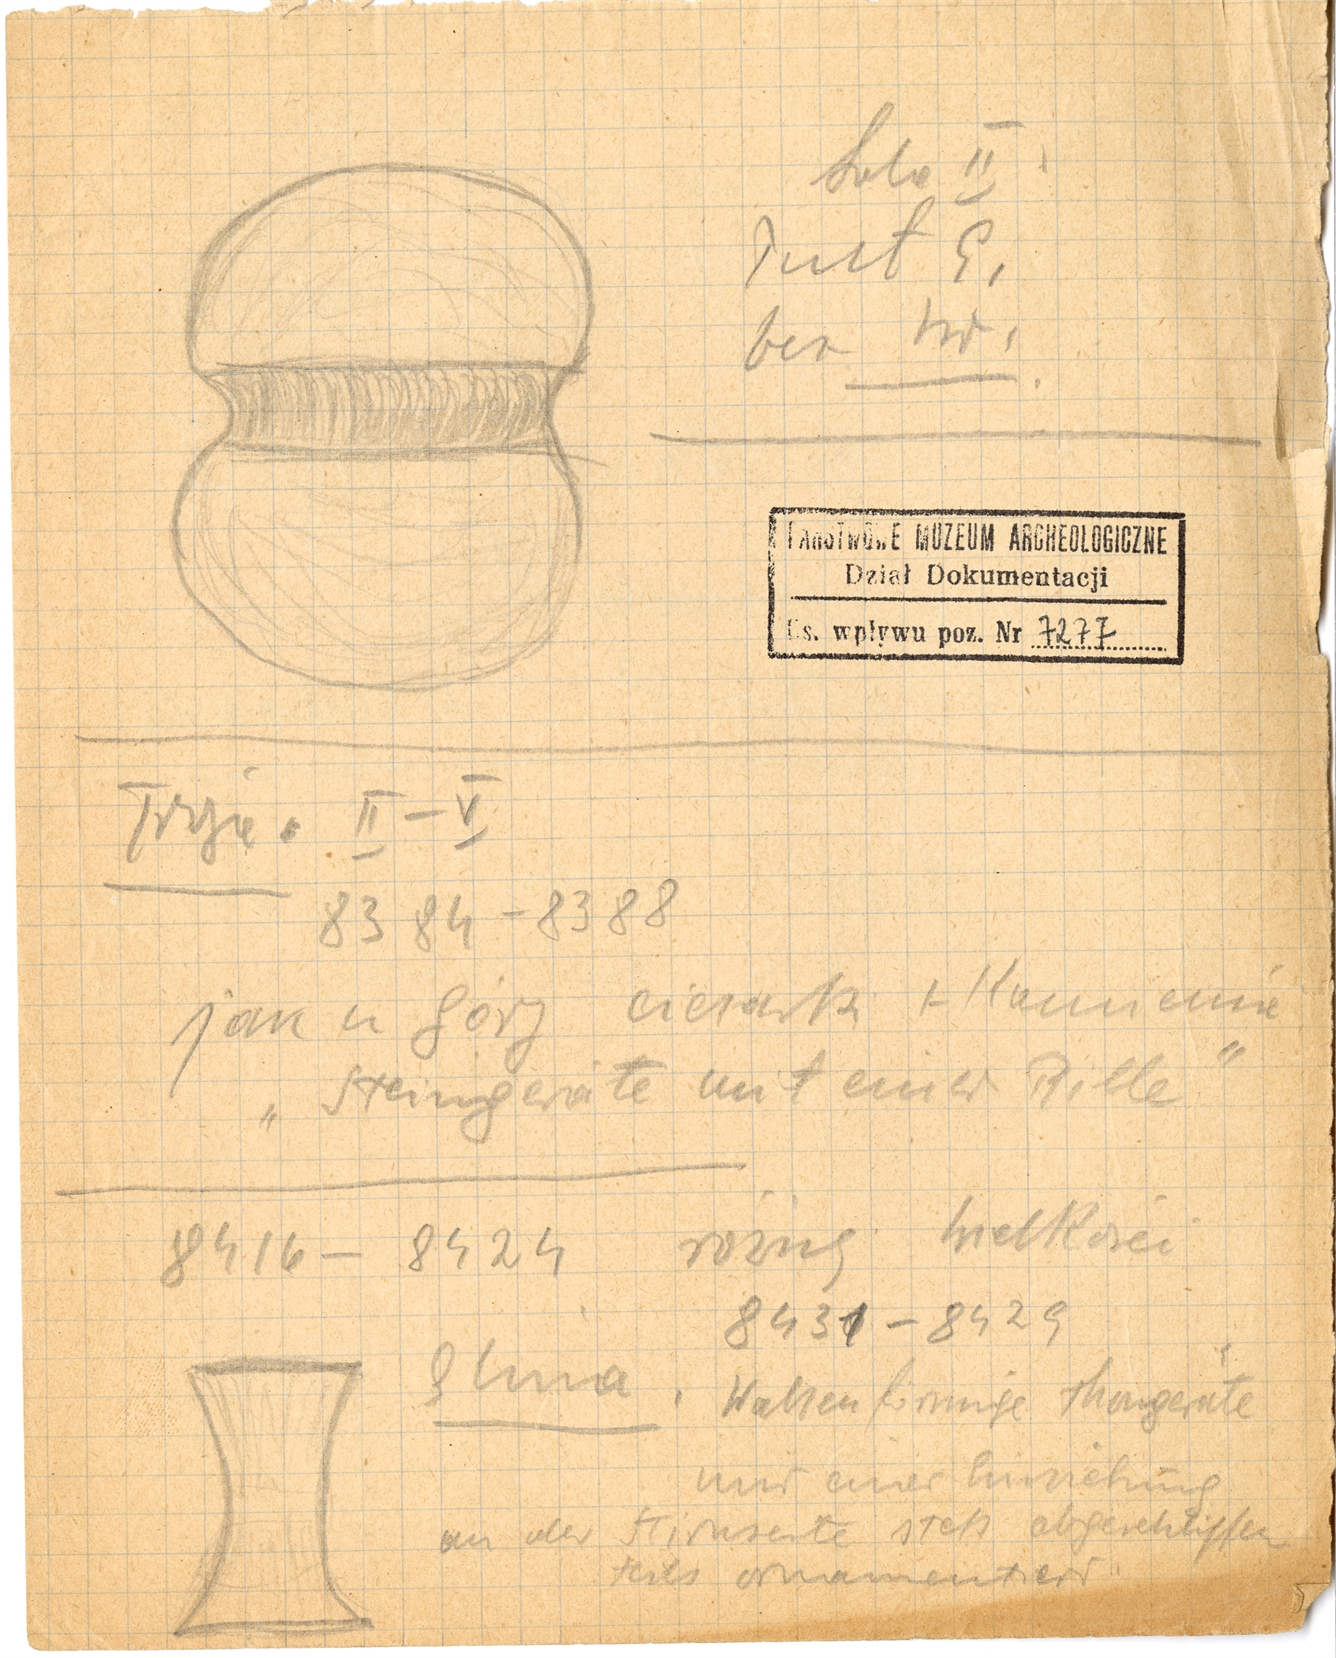 Sala II.
Pult G.
bez Nr.
PAŃSTWOWE MUZEUM ARCHEOLOGICZNE
Dział Dokumentacji
Ks. wpływu poz. Nr 7277
Troja. II – V
8384 – 8388
jak u góry ciężarki z kamienia
„Steingeräte mit einer Rille"
8416 – 8424 różnej wielkości
8431 – 8429
glina. Walzenförmige Thongeräte
mit einer Einziehung
an der Stirnseite stets abgeschliffen
teils ornamentiert"